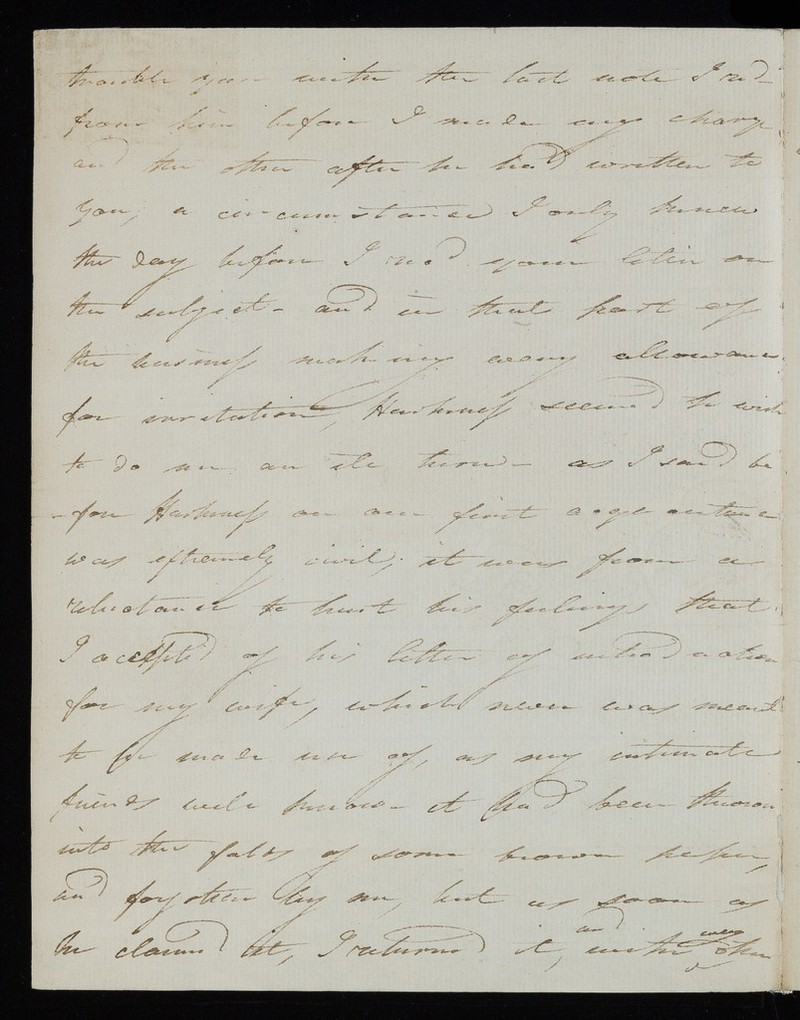 trouble you with the last note I recd
from him before I made any charge
and the other after he had written to
you, a circumstance I only knew
the day before I recd your letter on
the subject - and in that part of
the business making every allowance
for irritation, Harkness seemed to wish
to do me an ill turn - as I said be
-fore Harkness on our first acquaintance
was extremely civil, it was from a
reluctance to hurt his feelings that
I accepted of his letter of introduction
for my wife, which never was meant
to be made use of, as my intimate
friends well know - it had been thrown
into the folds of some brown paper,
and forgotten by me, but as soon as
he claimed it, I returned it, and with every other